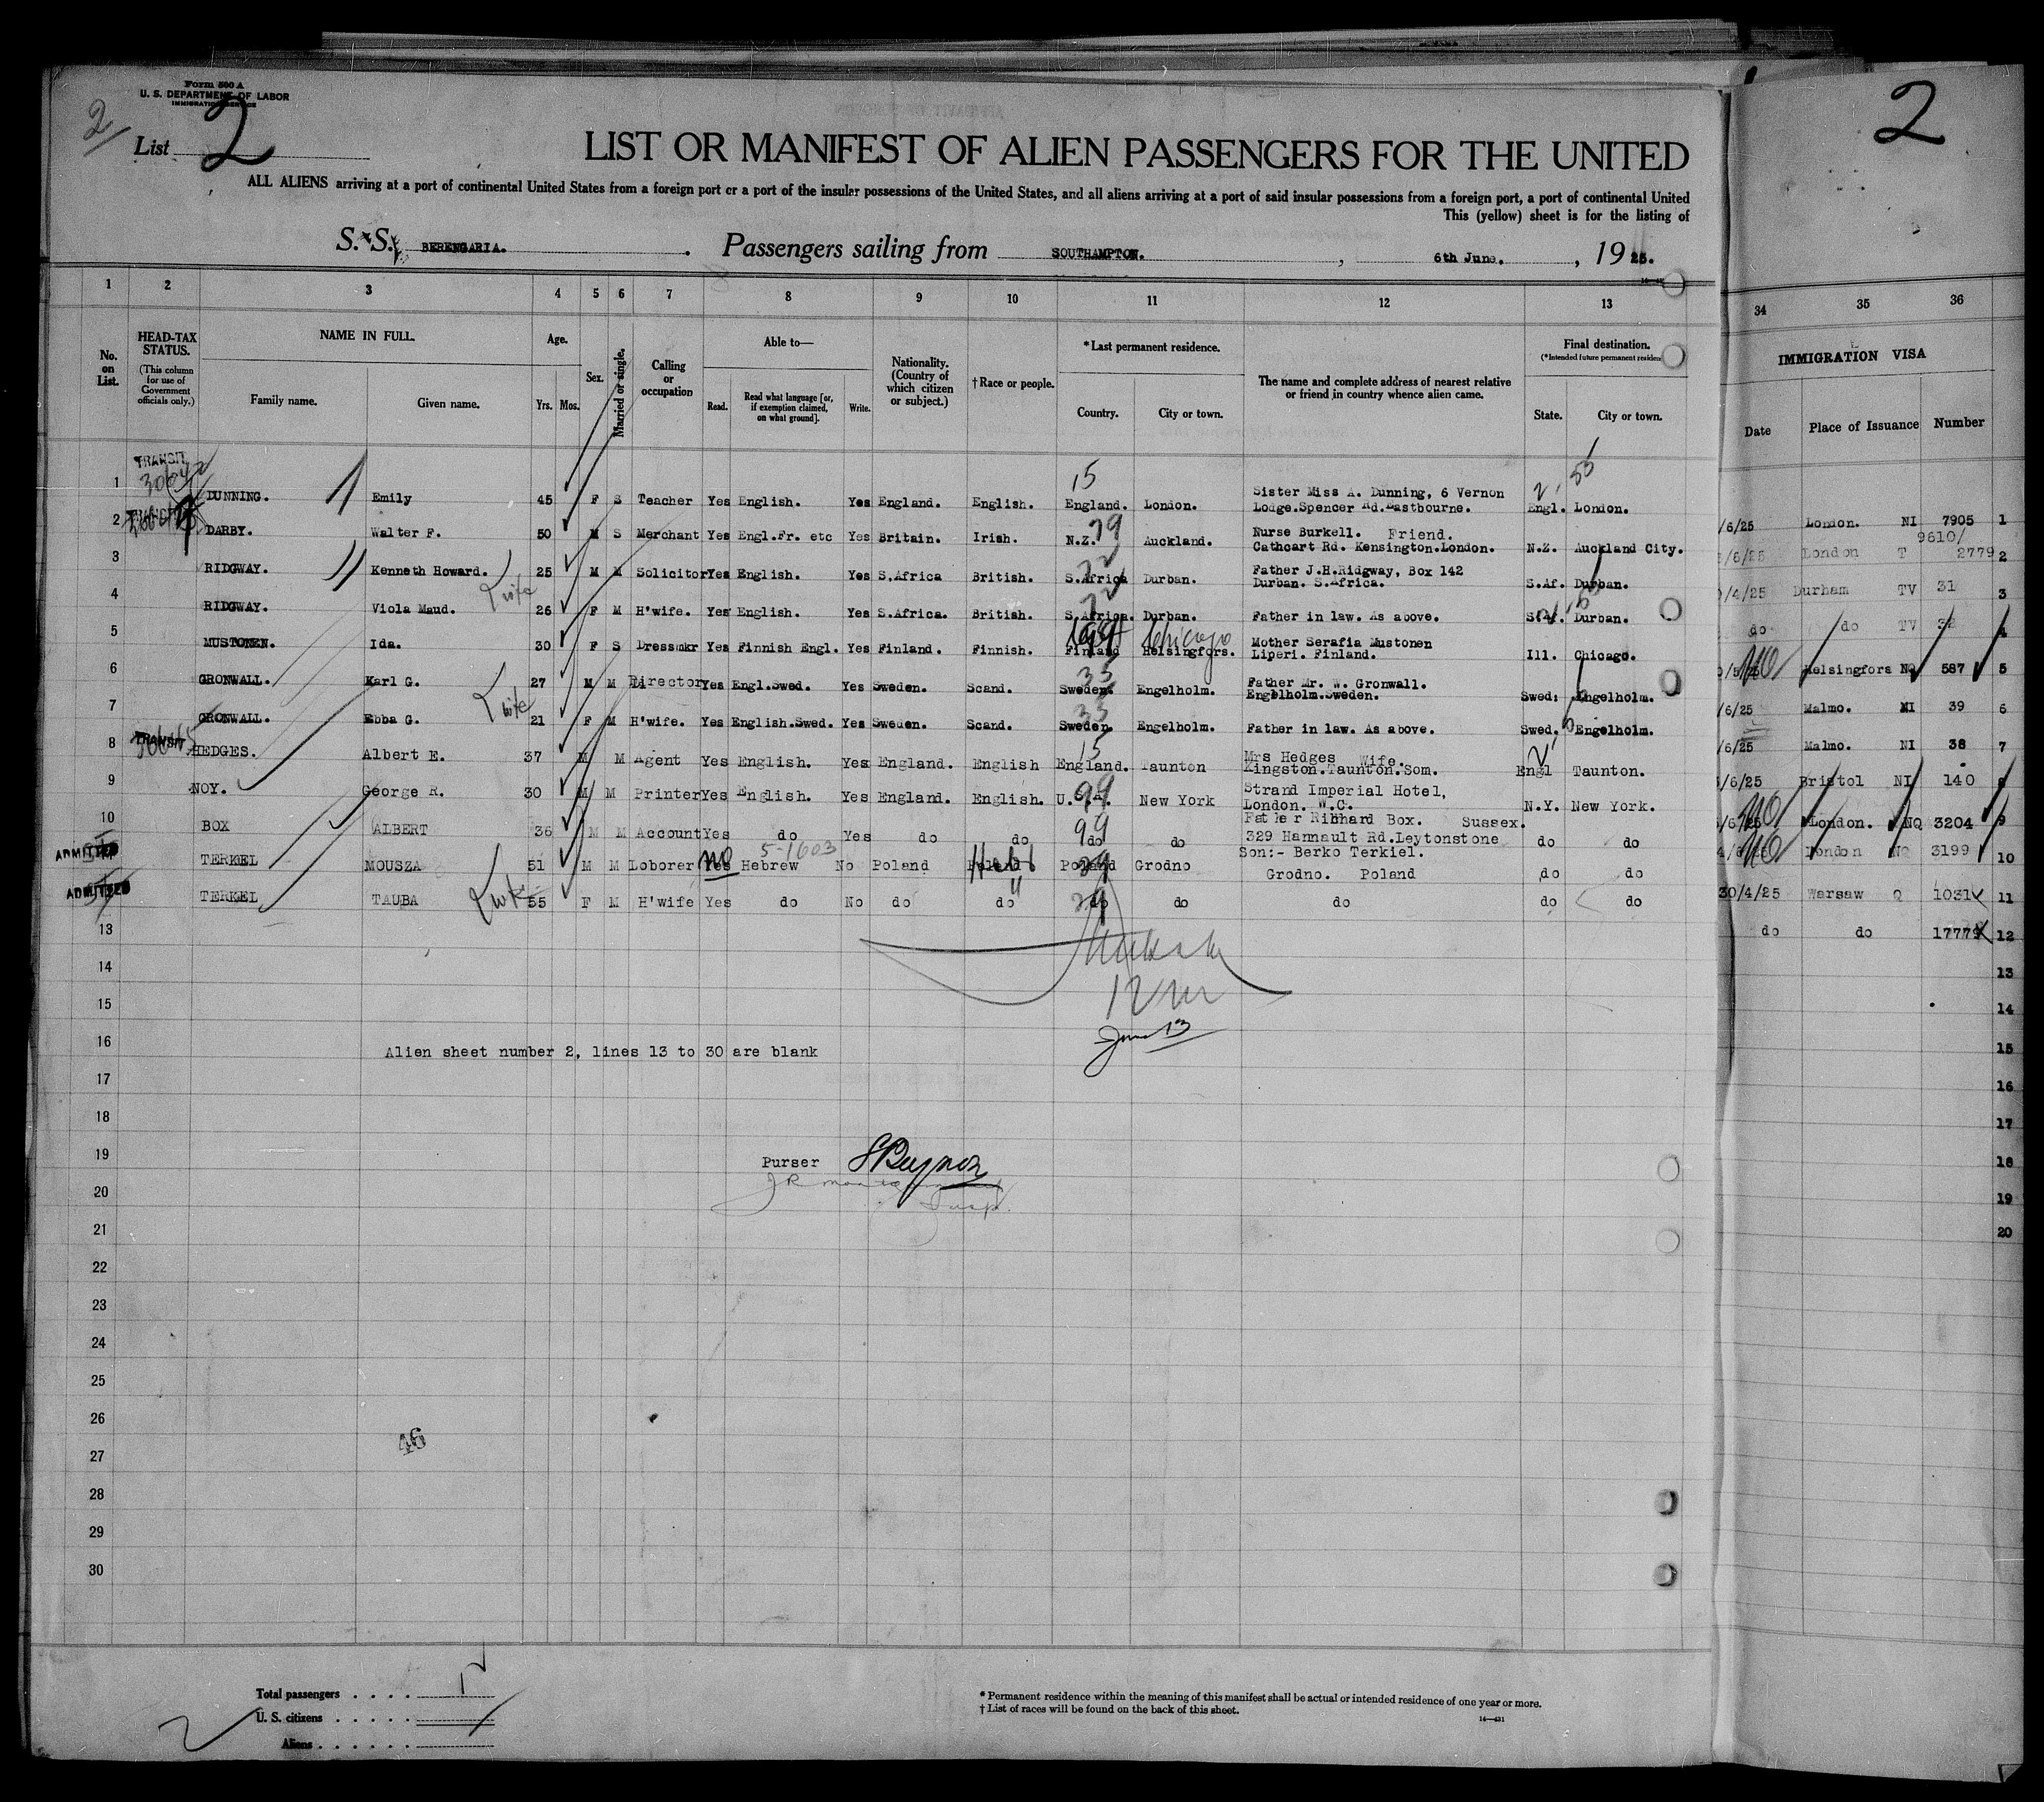 Form 500 A
U. S. DEPARTMENT OF LABOR
IMMIGRATION SERVICE
2
List 2
2
LIST OR MANIFEST OF ALIEN PASSENGERS FOR THE UNITED
ALL ALIENS arriving at a port of continental United States from a foreign port or a port of the insular possessions of the United States, and all aliens arriving at a port of said insular possessions from a foreign port, a port of continental United
This (yellow) sheet is for the listing of
S. S. BERENGARIA. Passengers sailing from SOUTHAMPTON. , 6th June. , 19 25.
1 2 3 4 5 6 7 8 9 10 11 12 13 34 35 36
No. on List.
HEAD-TAX STATUS. (This column for use of Government officials only.)
NAME IN FULL. Family name. Given name.
Age. Yrs. Mos.
Sex.
Married or single.
Calling or occupation
Able to— Read. Read what language [or, if exemption claimed, on what ground]. Write.
Nationality. (Country of which citizen or subject.)
†Race or people.
*Last permanent residence. Country. City or town.
The name and complete address of nearest relative or friend in country whence alien came.
Final destination. (*Intended future permanent residence) State. City or town.
IMMIGRATION VISA
Date Place of Issuance Number
1 TRANSIT DUNNING. Emily 45 F S Teacher Yes English. Yes England. English. 15 England. London. Sister Miss A. Dunning, 6 Vernon Lodge.Spencer Rd.Eastbourne. Engl. London. /6/25 London. NI 7905 1
2 TRANSIT DARBY. Walter F. 50 M S Merchant Yes Engl.Fr. etc Yes Britain. Irish. N.Z. 79 Auckland. Nurse Burkell. Friend. Cathcart Rd. Kensington.London. N.Z. Auckland City. /6/25 London T 9610/ 2779 2
3 RIDGWAY. Kenneth Howard. 25 M M Solicitor Yes English. Yes S.Africa British. S.Africa Durban. Father J.H.Ridgway, Box 142 Durban. S.Africa. S.Af. Durban. /4/25 Durham TV 31 3
4 RIDGWAY. Viola Maud. wife 26 F M H'wife. Yes English. Yes S.Africa. British. S.Africa. Durban. Father in law. As above. S.Af. Durban. do do TV 32 4
5 MUSTONEN. Ida. 30 F S Dressmkr Yes Finnish Engl. Yes Finland. Finnish. Finland Helsingfors. Chicago Mother Serafia Mustonen Liperi. Finland. Ill. Chicago. Helsingfors NQ 587 5
6 GRONWALL. Karl G. 27 M M Director Yes Engl.Swed. Yes Sweden. Scand. 33 Sweden. Engelholm. Father Mr. W. Gronwall. Engelholm.Sweden. Swed: Engelholm. /6/25 Malmo. NI 39 6
7 GRONWALL. Ebba G. wife 21 F M H'wife. Yes English.Swed. Yes Sweden. Scand. 33 Sweden. Engelholm. Father in law. As above. Swed. Engelholm. /6/25 Malmo. NI 38 7
8 TRANSIT HEDGES. Albert E. 37 M M Agent Yes English. Yes England. English 15 England. Taunton Mrs Hedges Wife. Kingston.Taunton.Som. Engl Taunton. /6/25 Bristol NI 140 8
9 NOY. George R. 30 M M Printer Yes English. Yes England. English. U.S.A. 99 New York Strand Imperial Hotel, London. W.C. N.Y. New York. /6/25 London. NQ 3204 9
10 BOX ALBERT 36 M M Account Yes do Yes do do 99 do do Father Rihhard Box. Sussex. 329 Hannault Rd.Leytonstone do do London NQ 3199 10
ADMITTED TERKEL MOUSZA 51 M M Loborer Yes no Hebrew 5-1603 No Poland Poland Heb Poland 29 Grodno Son:- Berko Terkiel. Grodno. Poland do do 30/4/25 Warsaw Q 1031 11
ADMITTED TERKEL TAUBA wife 55 F M H'wife Yes do No do do " do 29 do do do do do do 17779 12
13 13
14 14
15 15
June 13
16 Alien sheet number 2, lines 13 to 30 are blank 16
17 17
18 18
19 Purser 19
20 20
21
22
23
24
25
26
46
27
28
29
30
Total passengers . . . . 1
U. S. citizens . . . . .
Aliens . . . . . .
* Permanent residence within the meaning of this manifest shall be actual or intended residence of one year or more.
† List of races will be found on the back of this sheet.
14—431